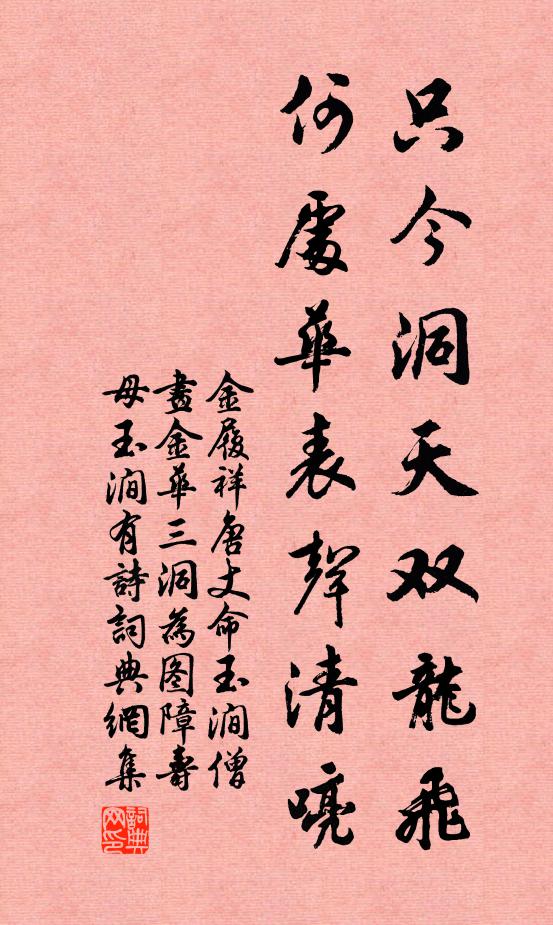 只今洞天双龍飛
何處華表聲清喨
金履祥唐丈命玉澗僧
畫金華三洞為图障壽
母玉澗有詩詞典網集
詞典网印